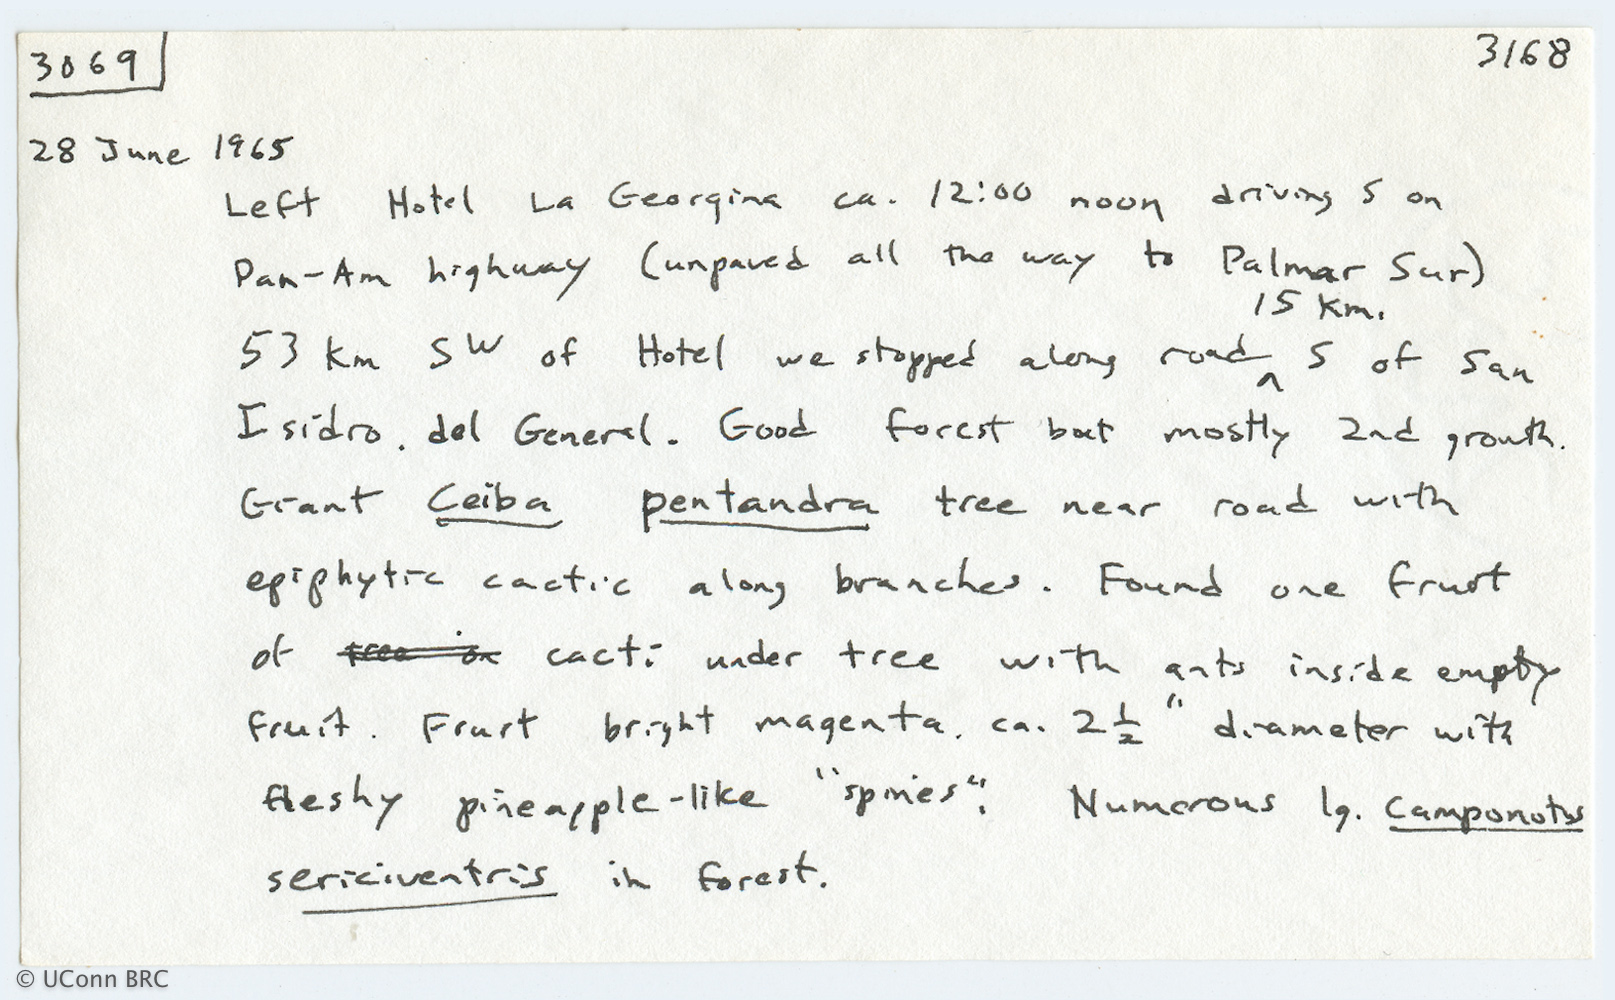 3069
3168
28 June 1965
Left Hotel La Georgina ca. 12:00 noon driving S on
Pan-Am highway (unpaved all the way to Palmar Sur)
15 km.
53 km SW of Hotel we stopped along road ^ S of San
Isidro. del General. Good forest but mostly 2nd growth.
Giant Ceiba pentandra tree near road with
epiphytic cactic along branches. Found one fruit
of tree on cacti under tree with ants inside empty
fruit. Fruit bright magenta. ca. 2 1/2" diameter with
fleshy pineapple-like "spines". Numerous lg. Camponotus
sericiventris in forest.
© UConn BRC